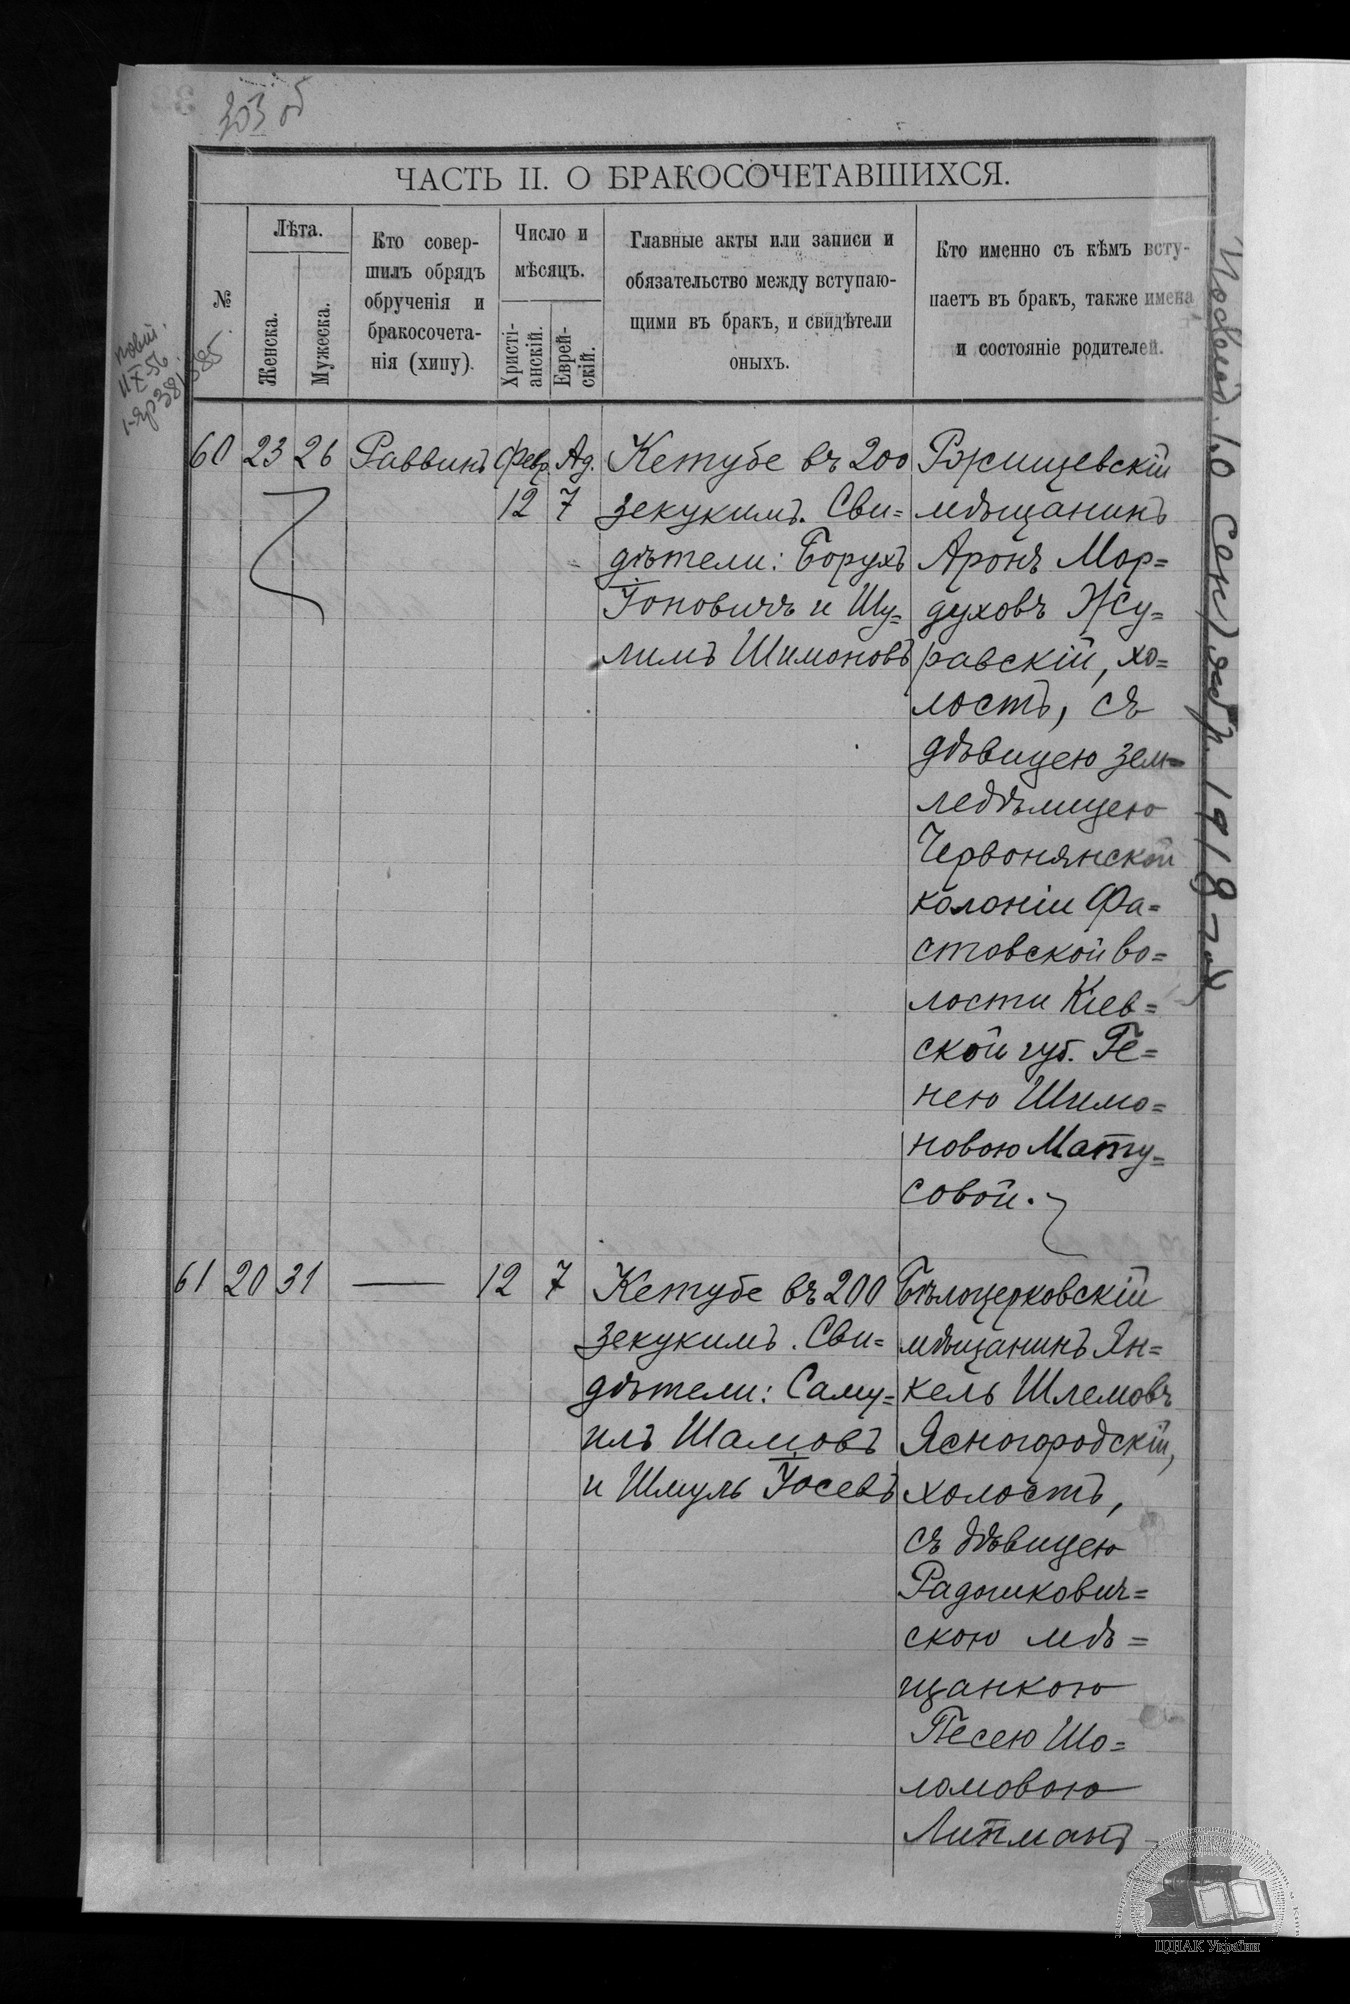 303 об
ЧАСТЬ II. О БРАКОСОЧЕТАВШИХСЯ.
№
Лѣта.
Женска.
Мужеска.
Кто совер-
шилъ обрядъ
обрученія и
бракосочета-
нія (хипу).
Число и
мѣсяцъ.
Христі-
анскій.
Еврей-
скій.
Главные акты или записи и
обязательство между вступаю-
щими въ бракъ, и свидѣтели
оныхъ.
Кто именно съ кѣмъ всту-
паетъ въ бракъ, также имена
и состояніе родителей.
60 23 26 Раввинъ Февр. Ад.
12 7
Кетубе въ 200
зекукимъ. Сви=
дѣтели: Борухъ
Іоновичъ и Шу=
лимъ Шимоновъ
Рожищевскій
мѣщанинъ
Аронъ Мор=
духовъ Жу=
равскій, хо=
лостъ, съ
дѣвицею зем=
ледѣлицею
Червонянской
колоніи Фа=
стовской во=
лости Кіев=
ской губ. Ге=
нею Шимо=
новою Мату=
совой.
61 20 31 — 12 7
Кетубе въ 200
зекукимъ. Сви=
дѣтели: Саму=
илъ Шамовъ
и Шмуль Іосевъ
Бѣлоцерковскій
мѣщанинъ Ян=
кель Шлемовъ
Ясногородскій,
холостъ,
съ дѣвицею
Радошкович=
скою мѣ=
щанкою
Песею Шо=
ломовою
Липманъ
10 Сентябр. 1918 год
ЦДІАК України